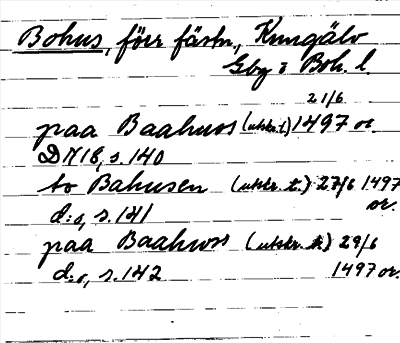 Bohus, förr fästn., Kungälv
Gbg o Boh. l.
21/6
paa Baahuss (utskr. t.) 1497 or.
DN 18, s. 140
to Bahusen (utskr. t.) 27/6 1497
or.
d:o, s. 141
paa Baahuss (utskr. t.) 29/6
d:o, s. 142 1497 or.